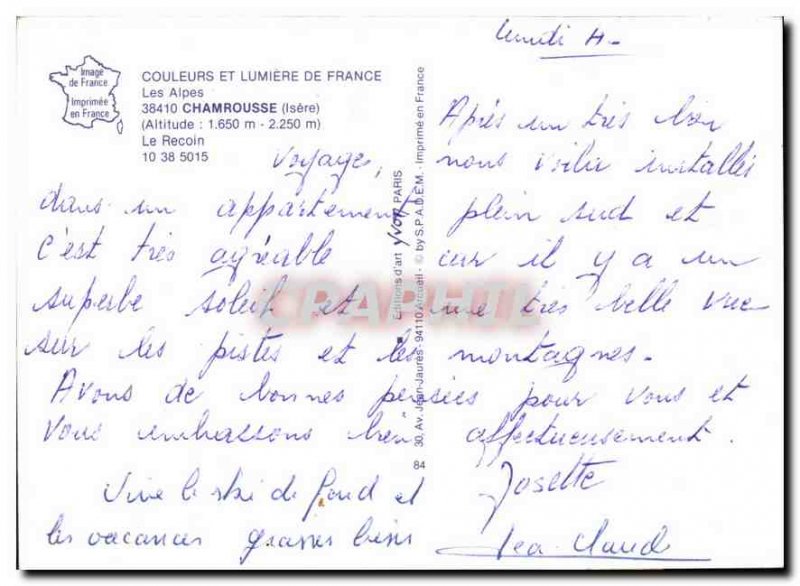 lundi 4-
Image
de France
Imprimée
en France
COULEURS ET LUMIÈRE DE FRANCE
Les Alpes
38410 CHAMROUSSE (Isère)
(Altitude : 1.650 m - 2.250 m)
Le Recoin
10 38 5015
30, Av. Jean-Jaurès - 94110 Arcueil - © by S.P.A.D.E.M. - Imprimé en France
Editions d'art yvon PARIS
84
Après un très bon
voyage, nous voilà installés
dans un appartement plein sud et
c'est très agréable car il y a un
superbe soleil et une très belle vue
sur les pistes et les montagnes.
Avons de bonnes pensées pour vous et
vous embrassons bien affectueusement.
Josette
Vive le ski de fond et
les vacances
Jea-Claude
CPAPHIL